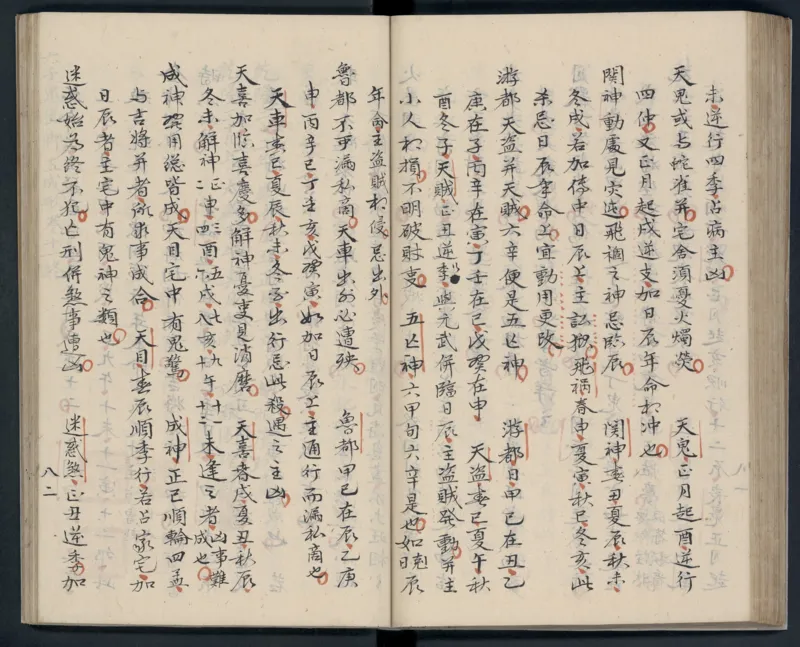 未逆行四季占病主凶
天鬼或与蛇雀并宅舍須憂火燭熒　天鬼正月起酉逆行
四仲又正月起戌逆支加日辰年命相冲也
関神動處見灾迍飛禍之神忌臨辰　関神春丑夏辰秋未
冬戌若加傳中日辰上主訟獄飛禍春申夏寅秋巳冬亥此
杀忌日辰年命上宜動用更改
游都天盗并天賊六辛便是五亡神　游都日甲巳在丑乙
庚在子丙辛在寅丁壬在巳戊癸在申　天盗春巳夏午秋
酉冬子天賊正丑逆季與元武併臨日辰主盗賊発動并主
小人相損不明破財事　五亡神六甲旬六辛是也如日辰
年命主盗賊相侵忌出外
魯都不可漏私商天車出外必遭殃　魯都甲巳在辰乙庚
申丙辛巳丁壬亥戊癸寅如加日辰上主通行而漏私商也
天車春巳夏辰秋未冬子出行忌此殺遇之主凶
天喜加臨喜慶多解神憂事見消磨　天喜春戌夏丑秋辰
冬未解神正二申三四酉五六戌七八亥九十午十一十二未逢之者凶事難成也
成神習用総皆成天目宅中有鬼驚　成神正巳順輪四孟
与吉將并者所求事成合　天目春辰順季行若占家宅加
日辰者主宅中有鬼神之類也
迷惑始為終不犯亡刑併煞事遭凶　迷惑煞正丑逆季加
八二